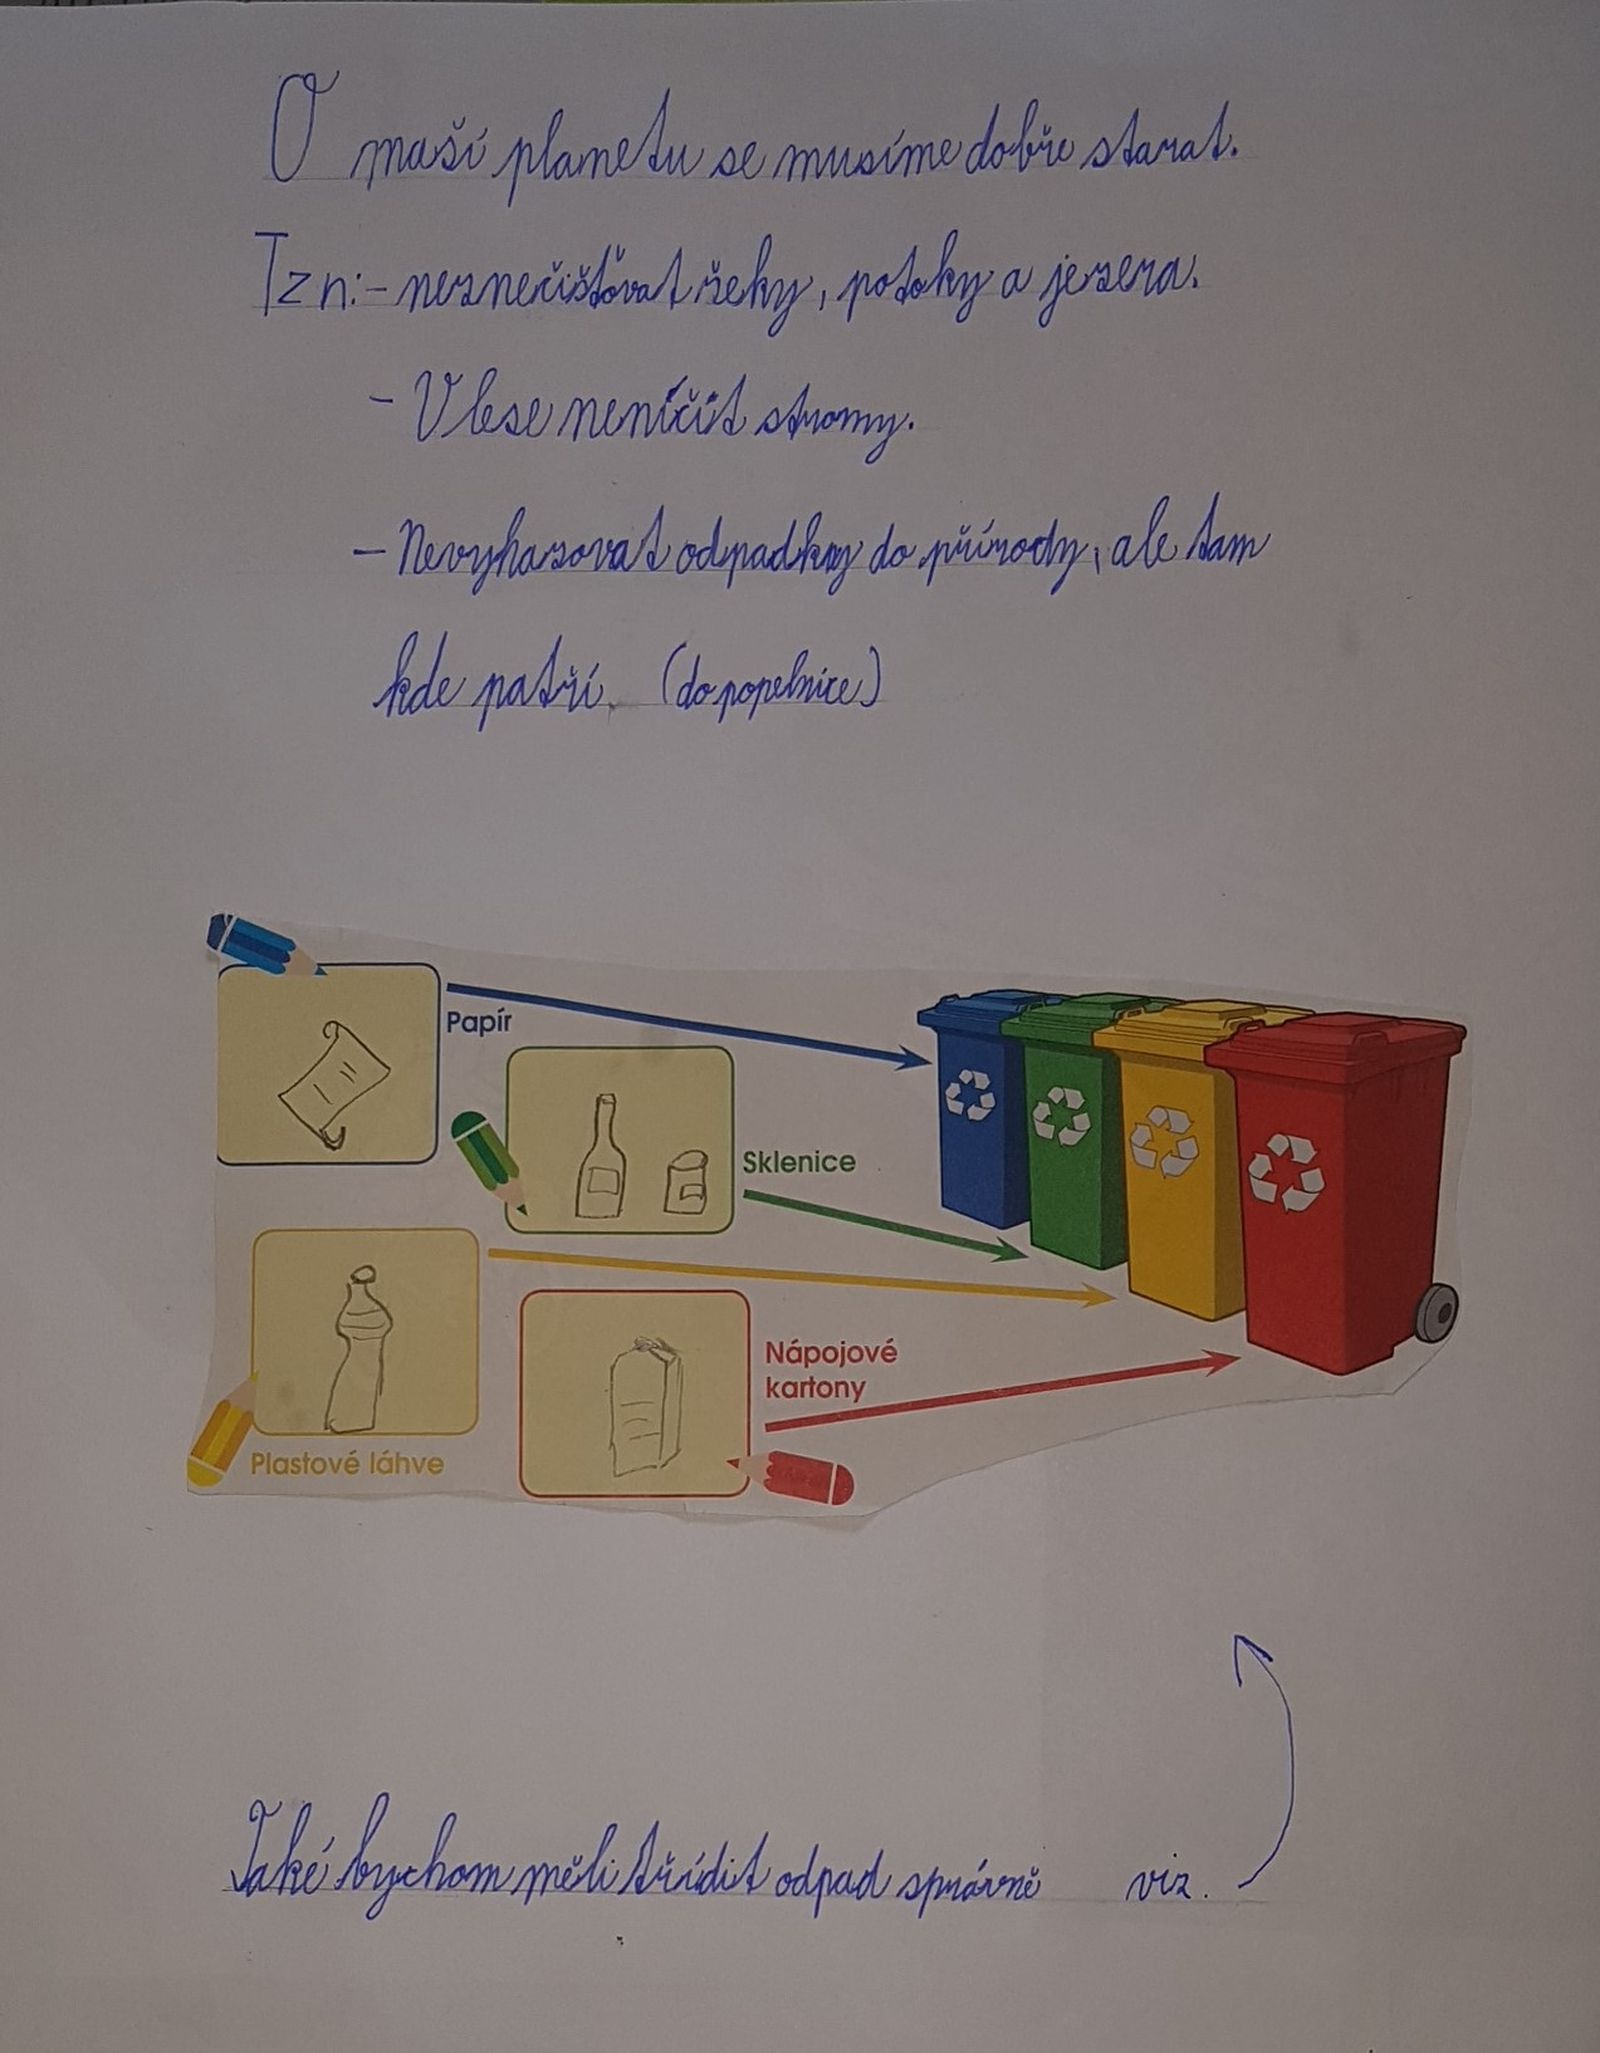 O naší planetu se musíme dobře starat.
Tzn:- neznečišťovat řeky, potoky a jezera.
- V lese neníčit stromy.
- Nevyhazovat odpadky do přírody, ale tam
kde patří. (do popelnice)
Papír
Sklenice
Nápojové
kartony
Plastové láhve
Také bychom měli třídit odpad správně viz.